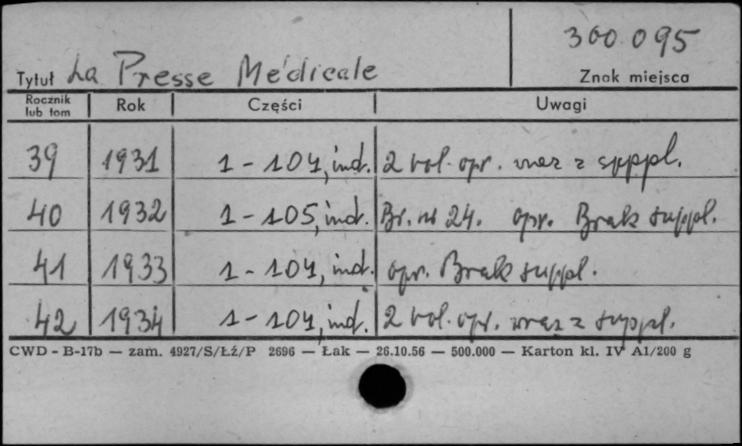 300.095
Tytuł La Presse Médicale Znak miejsca
Rocznik lub tom Rok Części Uwagi
39 1931 1 - 104, ind. 2 vol. opr. wraz z suppl.
40 1932 1 - 105, ind. Br. nr 24. opr. Brak suppl.
41 1933 1 - 104, ind. opr. Brak suppl.
42 1934 1 - 104, ind. 2 vol. opr. wraz z suppl.
CWD - B-17b — zam. 4927/S/Łź/P 2696 — Łak — 26.10.56 — 500.000 — Karton kl. IV A1/200 g